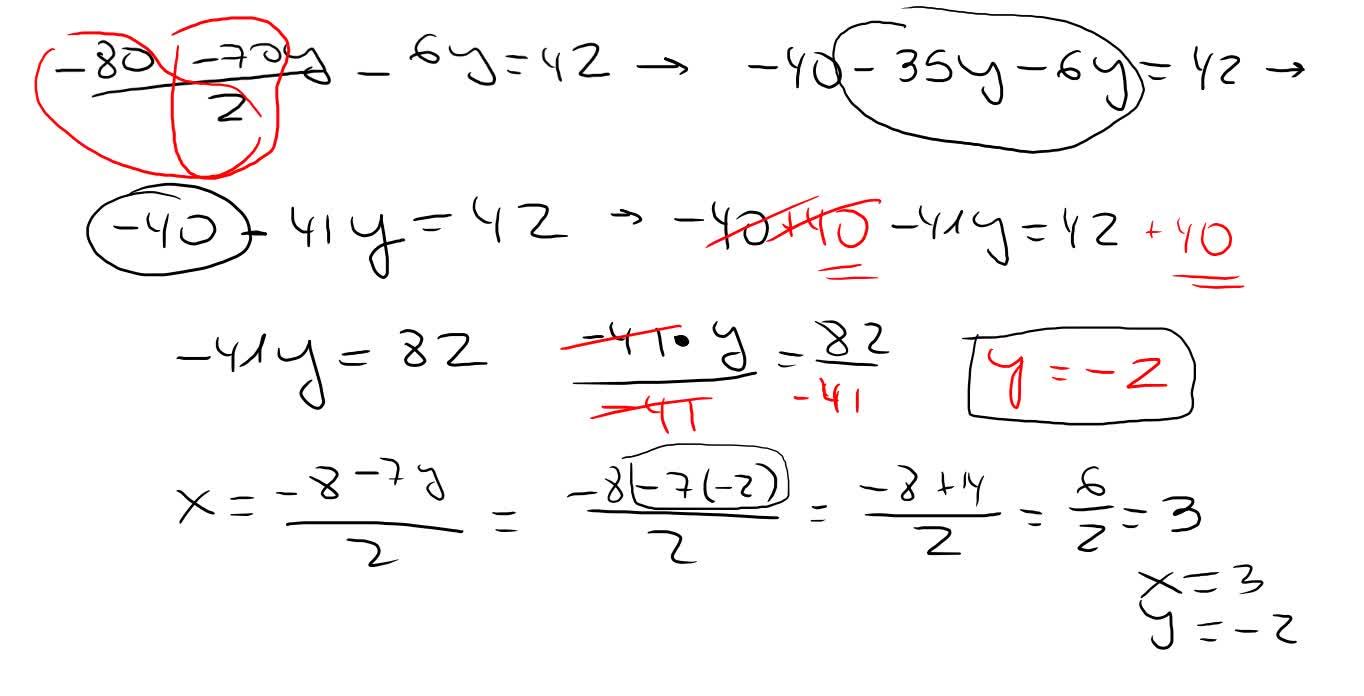 (-80 -70y)/2 - 6y = 42 → -40 - 35y - 6y = 42 →
-40 - 41y = 42 → -40 +40 - 41y = 42 + 40
-41y = 82 (-41 • y)/(-41) = 82/(-41) y = -2
x = (-8 -7y)/2 = (-8 -7(-2))/2 = (-8 +14)/2 = 6/2 = 3
x = 3
y = -2